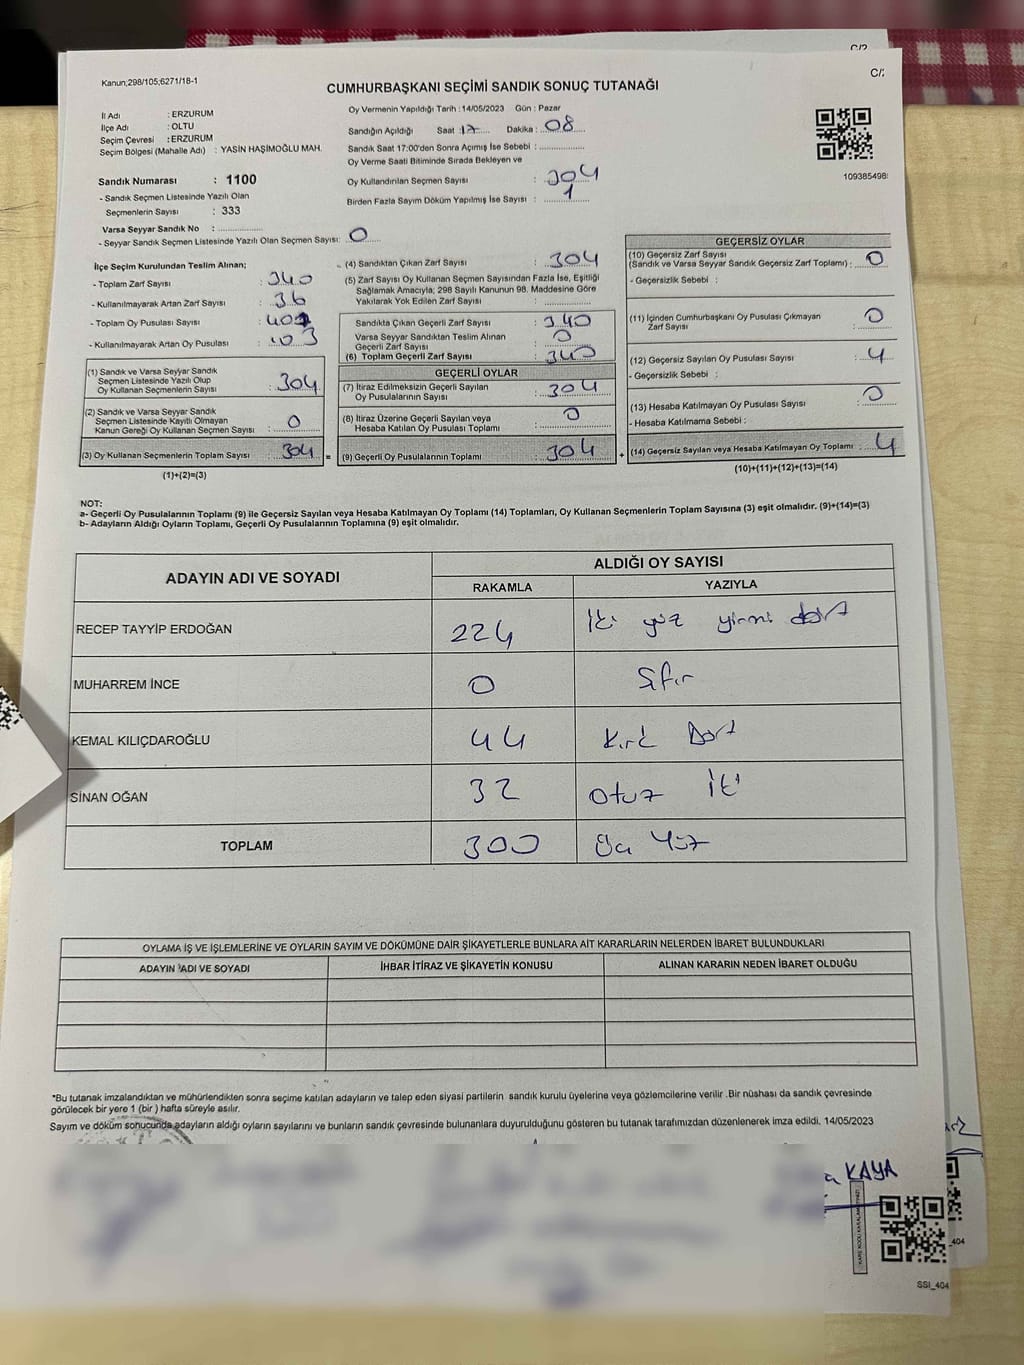 C/2
Kanun;298/105;6271/18-1
C/2
CUMHURBAŞKANI SEÇİMİ SANDIK SONUÇ TUTANAĞI
İl Adı : ERZURUM
İlçe Adı : OLTU
Seçim Çevresi : ERZURUM
Seçim Bölgesi (Mahalle Adı) : YASİN HAŞİMOĞLU MAH.
Oy Vermenin Yapıldığı Tarih : 14/05/2023 Gün : Pazar
Sandığın Açıldığı Saat : 17 Dakika : 08
Sandık Saat 17:00'den Sonra Açımış İse Sebebi :
Oy Verme Saati Bitiminde Sırada Bekleyen ve
Oy Kullandırılan Seçmen Sayısı : 304
Birden Fazla Sayım Döküm Yapılmış İse Sayısı : 1
109385498
Sandık Numarası : 1100
- Sandık Seçmen Listesinde Yazılı Olan
Seçmenlerin Sayısı : 333
Varsa Seyyar Sandık No :
- Seyyar Sandık Seçmen Listesinde Yazılı Olan Seçmen Sayısı: 0
İlçe Seçim Kurulundan Teslim Alınan;
- Toplam Zarf Sayısı : 340
- Kullanılmayarak Artan Zarf Sayısı : 36
- Toplam Oy Pusulası Sayısı :
- Kullanılmayarak Artan Oy Pusulası : 103
(1) Sandık ve Varsa Seyyar Sandık
Seçmen Listesinde Yazılı Olup
Oy Kullanan Seçmenlerin Sayısı : 304
(2) Sandık ve Varsa Seyyar Sandık
Seçmen Listesinde Kayıtlı Olmayan
Kanun Gereği Oy Kullanan Seçmen Sayısı : 0
(3) Oy Kullanan Seçmenlerin Toplam Sayısı : 304 =
(1)+(2)=(3)
(4) Sandıktan Çıkan Zarf Sayısı : 304
(5) Zarf Sayısı Oy Kullanan Seçmen Sayısından Fazla İse, Eşitliği
Sağlamak Amacıyla; 298 Sayılı Kanunun 98. Maddesine Göre
Yakılarak Yok Edilen Zarf Sayısı :
Sandıkta Çıkan Geçerli Zarf Sayısı : 340
Varsa Seyyar Sandıktan Teslim Alınan
Geçerli Zarf Sayısı : 0
(6) Toplam Geçerli Zarf Sayısı : 340
GEÇERLİ OYLAR
(7) İtiraz Edilmeksizin Geçerli Sayılan
Oy Pusulalarının Sayısı : 304
(8) İtiraz Üzerine Geçerli Sayılan veya
Hesaba Katılan Oy Pusulası Toplamı : 0
(9) Geçerli Oy Pusulalarının Toplamı : 304 +
GEÇERSİZ OYLAR
(10) Geçersiz Zarf Sayısı
(Sandık ve Varsa Seyyar Sandık Geçersiz Zarf Toplamı) : 0
- Geçersizlik Sebebi :
(11) İçinden Cumhurbaşkanı Oy Pusulası Çıkmayan
Zarf Sayısı : 0
(12) Geçersiz Sayılan Oy Pusulası Sayısı : 4
- Geçersizlik Sebebi :
(13) Hesaba Katılmayan Oy Pusulası Sayısı : 0
- Hesaba Katılmama Sebebi :
(14) Geçersiz Sayılan veya Hesaba Katılmayan Oy Toplamı : 4
(10)+(11)+(12)+(13)=(14)
NOT:
a- Geçerli Oy Pusulalarının Toplamı (9) ile Geçersiz Sayılan veya Hesaba Katılmayan Oy Toplamı (14) Toplamları, Oy Kullanan Seçmenlerin Toplam Sayısına (3) eşit olmalıdır. (9)+(14)=(3)
b- Adayların Aldığı Oyların Toplamı, Geçerli Oy Pusulalarının Toplamına (9) eşit olmalıdır.
ADAYIN ADI VE SOYADI ALDIĞI OY SAYISI
RAKAMLA YAZIYLA
RECEP TAYYİP ERDOĞAN 224 İki yüz yirmi dört
MUHARREM İNCE 0 Sıfır
KEMAL KILIÇDAROĞLU 44 Kırk Dört
SİNAN OĞAN 32 Otuz İki
TOPLAM 300 Üç Yüz
OYLAMA İŞ VE İŞLEMLERİNE VE OYLARIN SAYIM VE DÖKÜMÜNE DAİR ŞİKAYETLERLE BUNLARA AİT KARARLARIN NELERDEN İBARET BULUNDUKLARI
ADAYIN ADI VE SOYADI İHBAR İTİRAZ VE ŞİKAYETİN KONUSU ALINAN KARARIN NEDEN İBARET OLDUĞU
*Bu tutanak imzalandıktan ve mühürlendikten sonra seçime katılan adayların ve talep eden siyasi partilerin sandık kurulu üyelerine veya gözlemcilerine verilir .Bir nüshası da sandık çevresinde
görülecek bir yere 1 (bir ) hafta süreyle asılır.
Sayım ve döküm sonucunda adayların aldığı oyların sayılarını ve bunların sandık çevresinde bulunanlara duyurulduğunu gösteren bu tutanak tarafımızdan düzenlenerek imza edildi. 14/05/2023
KAYA
_404
SSI_404